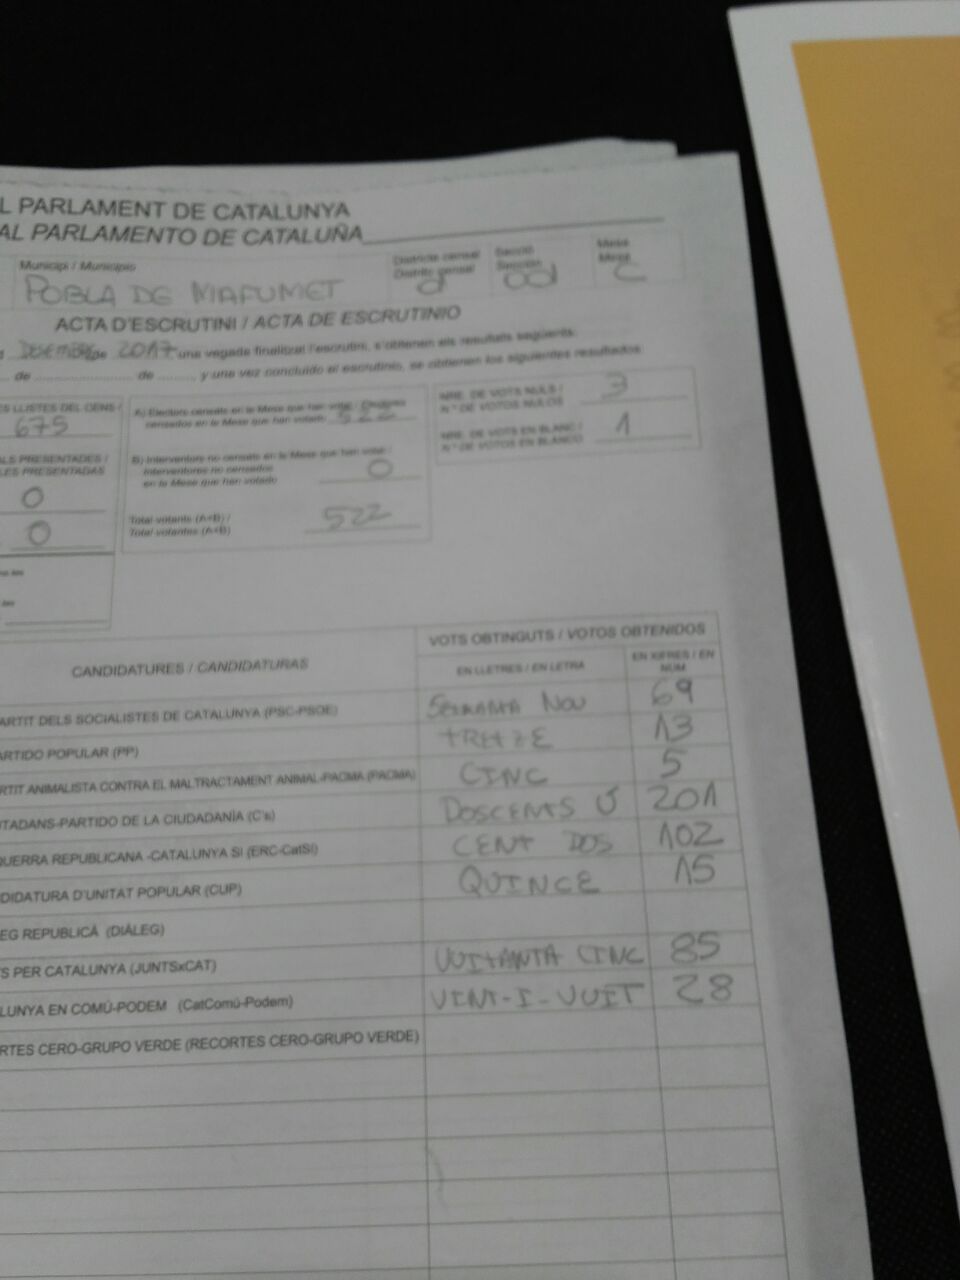 L PARLAMENT DE CATALUNYA
AL PARLAMENTO DE CATALUÑA
Municipi / Municipio
Districte censal
Distrito censal
Secció
Sección
Mesa
Mesa
POBLA DE MAFUMET
C
ACTA D'ESCRUTINI / ACTA DE ESCRUTINIO
DESEMBRE de 2017 una vegada finalitzat l'escrutini, s'obtenen els resultats següents:
de ........ de ........ y una vez concluido el escrutinio, se obtienen los siguientes resultados
ES LLISTES DEL CENS /
675
A) Electors censats en la Mesa que han votat / Electores
censados en la Mesa que han votado 522
NRE. DE VOTS NULS /
Nº DE VOTOS NULOS 3
NRE. DE VOTS EN BLANC /
Nº DE VOTOS EN BLANCO 1
ALS PRESENTADES /
LES PRESENTADAS
0
0
B) Interventors no censats en la Mesa que han votat /
Interventores no censados
en la Mesa que han votado 0
Total votants (A+B) /
Total votantes (A+B) 522
CANDIDATURES / CANDIDATURAS
VOTS OBTINGUTS / VOTOS OBTENIDOS
EN LLETRES / EN LETRA
EN XIFRES / EN
NUM
ARTIT DELS SOCIALISTES DE CATALUNYA (PSC-PSOE) SEIXANTA NOU 69
ARTIDO POPULAR (PP) TRETZE 13
RTIT ANIMALISTA CONTRA EL MALTRACTAMENT ANIMAL-PACMA (PACMA) CINC 5
UTADANS-PARTIDO DE LA CIUDADANÍA (C's) DOSCENTS Ú 201
QUERRA REPUBLICANA -CATALUNYA SI (ERC-CatSI) CENT DOS 102
DIDATURA D'UNITAT POPULAR (CUP) QUINCE 15
EG REPUBLICÀ (DIÀLEG)
S PER CATALUNYA (JUNTSxCAT) VUITANTA CINC 85
LUNYA EN COMÚ-PODEM (CatComú-Podem) VINT-I-VUIT 28
RTES CERO-GRUPO VERDE (RECORTES CERO-GRUPO VERDE)